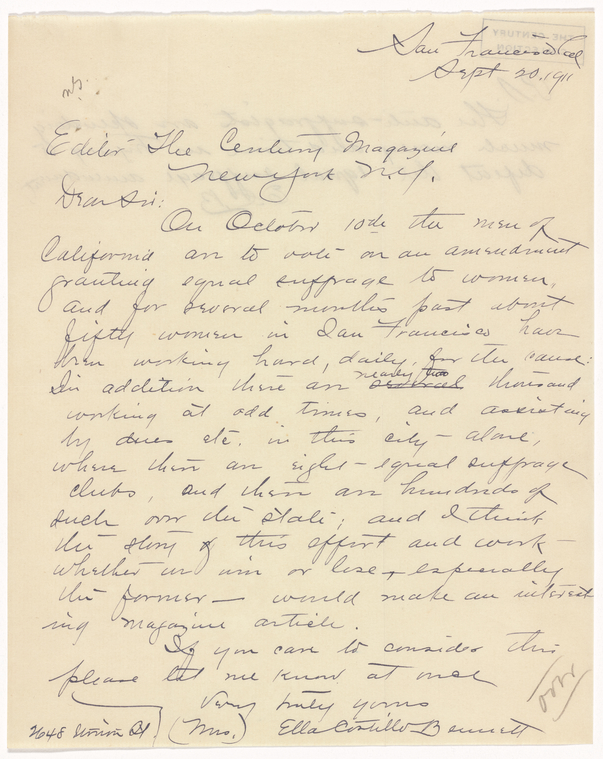 San Francisco Cal
Sept 20, 1911
Editor The Century Magazine
New York N.Y.
Dear Sir:
On October 10th the men of
California are to vote on an amendment
granting equal suffrage to women,
and for several months past about
fifty women in San Francisco have
been working hard, daily, for the cause:
nearly two
In addition there are several thousand
working at odd times, and assisting
by dues etc. in this city alone,
where there are eight equal suffrage
clubs, and there are hundreds of
such over the state; and I think
the story of this effort and work —
whether we win or lose, especially
the former — would make an interest
ing magazine article.
If you care to consider this
please let me know at once
Very truly yours
2648 Union St. (Mrs.) Ella Costillo Bennett
over